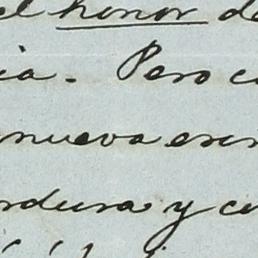 el honor de
ia. Pero c
nueva esen
rdura y co